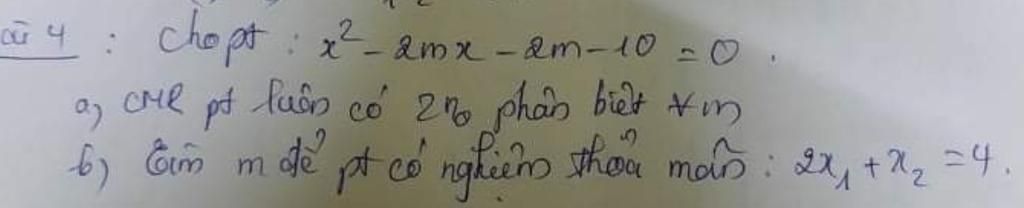 ài 4 : Cho pt : x² - 2mx - 2m - 10 = 0 .
a, CMR pt luôn có 2no phân biệt ∀m
b) Tìm m để pt có nghiệm thỏa mãn : 2x₁ + x₂ = 4 .